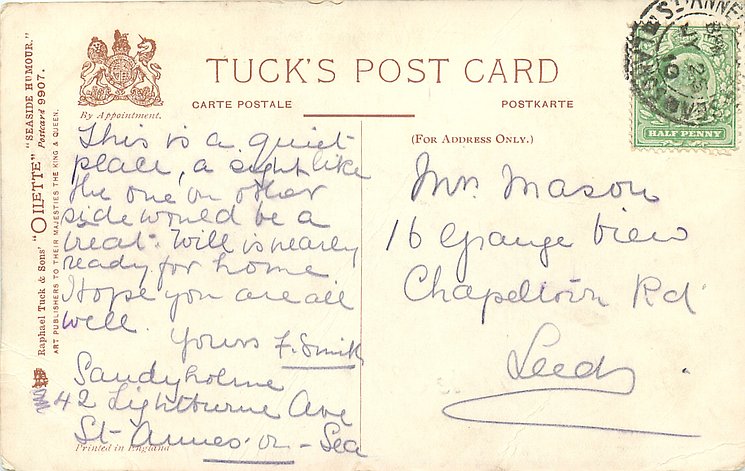 TUCK'S POST CARD
CARTE POSTALE
POSTKARTE
By Appointment.
(FOR ADDRESS ONLY.)
Raphael Tuck & Sons' "OILETTE" "SEASIDE HUMOUR." Postcard 9907.
ART PUBLISHERS TO THEIR MAJESTIES THE KING & QUEEN.
This is a quiet
place, a sight like
the one on other
side would be a
treat. Will is nearly
ready for home
Hope you are all
well.
Yours F. Smith
Sandyholme
42 Lightburne Ave
St-Annes-on-Sea
Printed in England
Mrs Mason
16 Grange View
Chapeltown Rd
Leeds
HALF PENNY
ST ANNE
JY 25
10